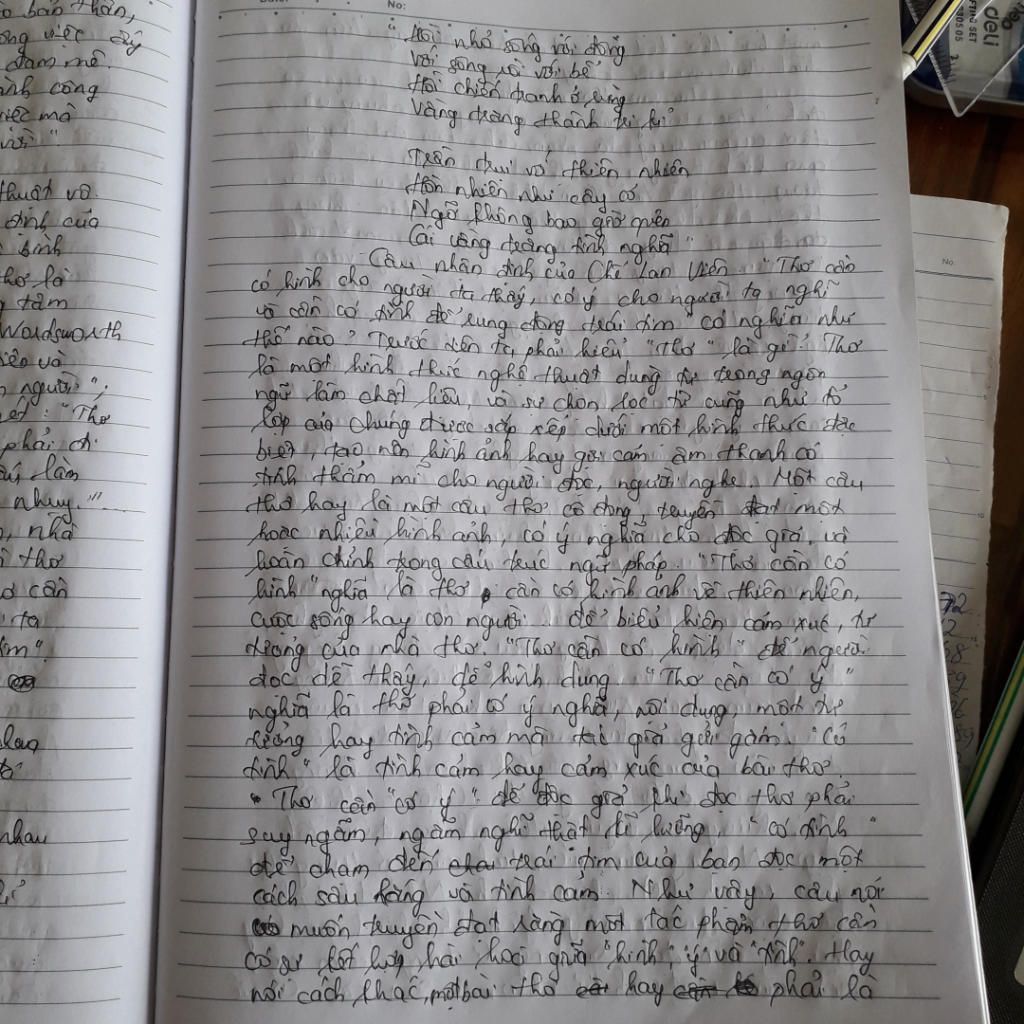 o bản thân,
ông việc ấy
đam mê.
ành công
việc mà
thuật vô
định của
sinh
thơ là
g tâm
Wordsworth
n người";
"Thơ
phải đi
làm
nhụy."
, nhà
thơ
cần
ta
tim".
nhau
No:
"Hồi nhỏ sống với đồng
với sông rồi với bể
Hồi chiến tranh ở rừng
Vầng trăng thành tri kỉ
Trần trụi với thiên nhiên
Hồn nhiên như cây cỏ
Ngỡ không bao giờ quên
Cái vầng trăng tình nghĩa"
Câu nhận định của Chế Lan Viên "Thơ cần
có hình cho người ta thấy, có ý cho người ta nghĩ
và cần có tình để rung động trái tim" có nghĩa như
thế nào? Trước tiên ta phải hiểu "Thơ" là gì? Thơ
là một hình thức nghệ thuật dùng từ trong ngôn
ngữ làm chất liệu, và sự chọn lọc từ cũng như tổ
lợp của chúng được sắp xếp dưới một hình thức đặc
biệt, tạo nên hình ảnh hay gợi cảm âm thanh có
tính thẩm mĩ cho người đọc, người nghe. Một câu
thơ hay là một câu thơ cô đọng, truyền đạt một
hoặc nhiều hình ảnh, có ý nghĩa cho độc giả, và
hoàn chỉnh trong cấu trúc ngữ pháp. "Thơ cần có
hình" nghĩa là thơ cần có hình ảnh về thiên nhiên,
cuộc sống hay con người. để biểu hiện cảm xúc, tư
tưởng của nhà thơ. "Thơ cần có hình" để người
đọc dễ thấy, dễ hình dung. "Thơ cần có ý"
nghĩa là thơ phải có ý nghĩa, nội dung, một tư
tưởng hay tình cảm mà tác giả gửi gắm. "Có
tình" là tình cảm hay cảm xúc của bài thơ.
"Thơ cần "có ý" để độc giả khi đọc thơ phải
suy ngẫm, ngẫm nghĩ thật kĩ lưỡng, "có tình"
để chạm đến trái tim của bạn đọc một
cách sâu lắng và tình cảm. Như vậy, câu nói
muốn truyền đạt rằng một tác phẩm thơ cần
có sự kết hợp hài hoà giữa "hình", "ý" và "tình". Hay
nói cách khác, một bài thơ hay phải là
deli
No.